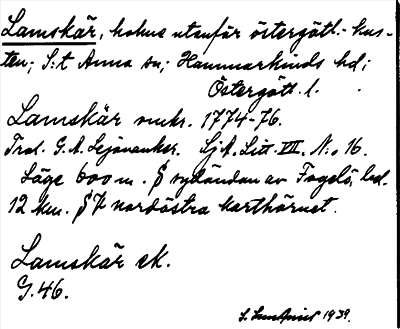 Lamskär, holme utanför östergötl.-kus-
ten; S:t Anna sn; Hammarkinds hd;
Östergötl. l.
Lamskär omkr. 1774-76.
Trol. G. A. Lejonanker. Sj.A. Litt. VIII. N:o 16.
Läge 600 m. S sydändan av Fogelö, bel.
12 km. S
nordöstra karthörnet.
Lamskär ek.
G. 46.
S. 1939.